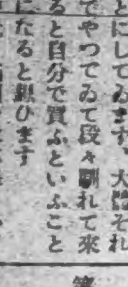 とにしてゐます、大體それ
でやつてゐて段々馴れて來
ると自分で買ふといふこと
になると思ひます